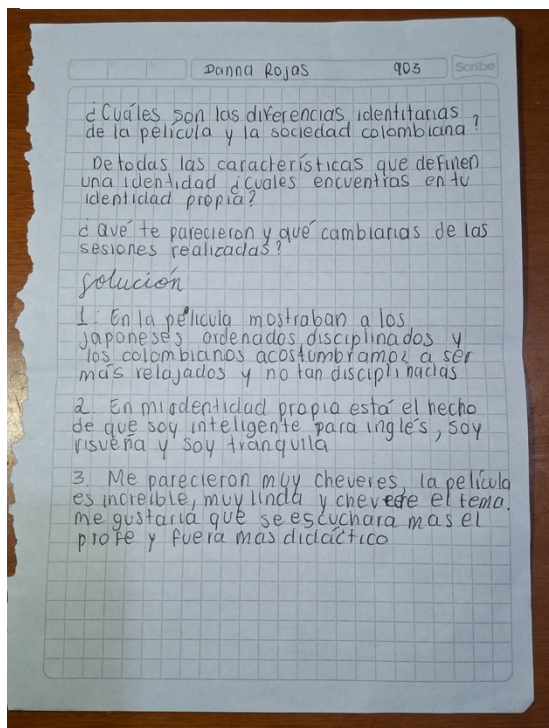 Danna Rojas 903 Scribe
¿Cuáles son las diferencias identitarias
de la pelicula y la sociedad colombiana?
De todas las caracteristicas que definen
una identidad ¿cuales encuentras en tu
identidad propia?
¿Qué te parecieron y qué cambiarias de las
sesiones realizadas?
Solución
1. En la película mostraban a los
japoneses ordenados, disciplinados y
los colombianos acostumbramos a ser
más relajados y no tan disciplinados
2. En mi identidad propia está el hecho
de que soy inteligente para inglés, soy
risueña y soy tranquila
3. Me parecieron muy cheveres, la película
es increible, muy linda y chevere el tema.
me gustaria que se escuchara mas el
profe y fuera mas didáctico